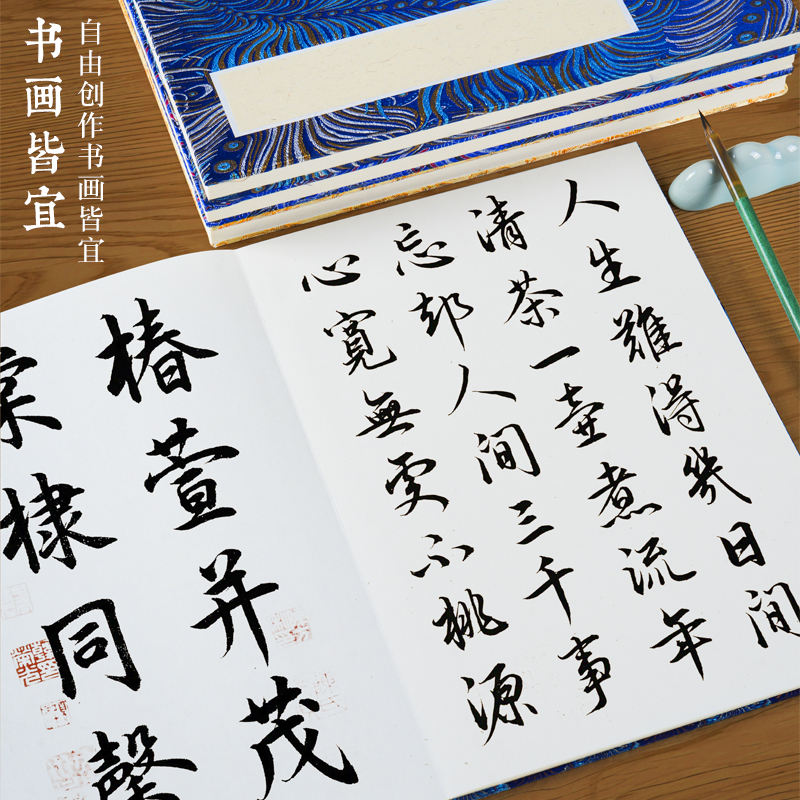 书画皆宜
自由创作书画皆宜
人生難得幾日间
清茶一壶煮流年
忘却人间三千事
心寬無處不桃源
椿萱并茂
棠棣同馨